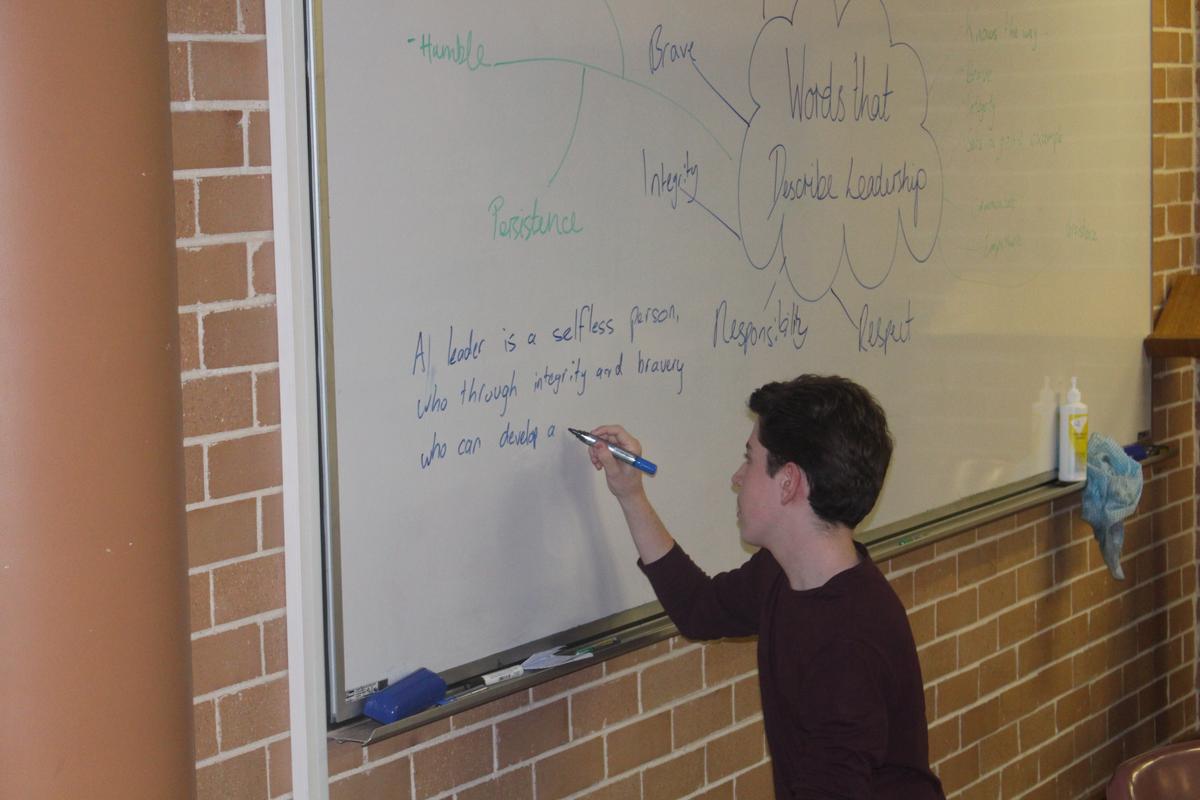 -Humble
Persistence
Brave
Integrity
Words that
Describe Leadership
Responsibility
Respect
Knows the way
Brave
Integrity
Sets a good example
A leader is a selfless person,
who through integrity and bravery
who can develop a